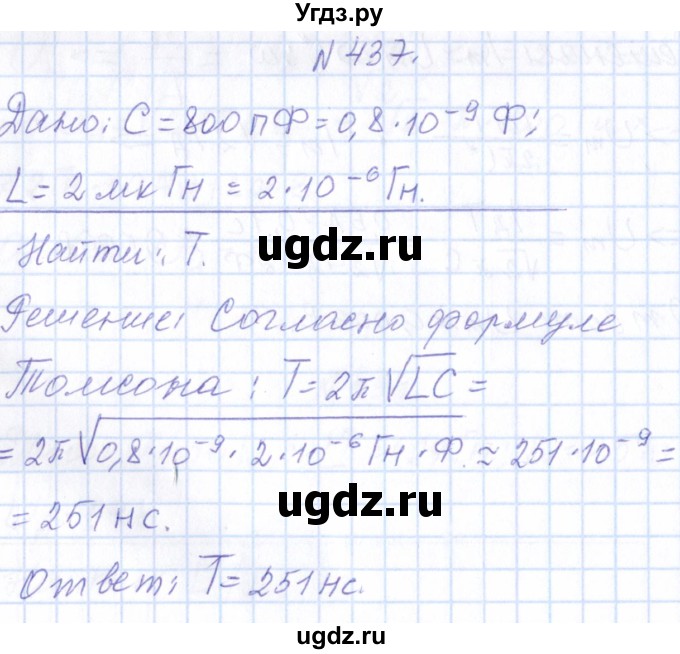 Угдз.ру
N 437.
Дано: C = 800 пФ = 0,8 · 10⁻⁹ Ф;
L = 2 мкГн = 2 · 10⁻⁶ Гн.
ugdz.ru
Найти: T.
Решение: Согласно формуле
Томсона: T = 2π √LC =
= 2π √0,8 · 10⁻⁹ · 2 · 10⁻⁶ Гн · Ф ≈ 251 · 10⁻⁹ =
ugdz.ru
= 251 нс.
Ответ: T = 251 нс.
ugdz.ru